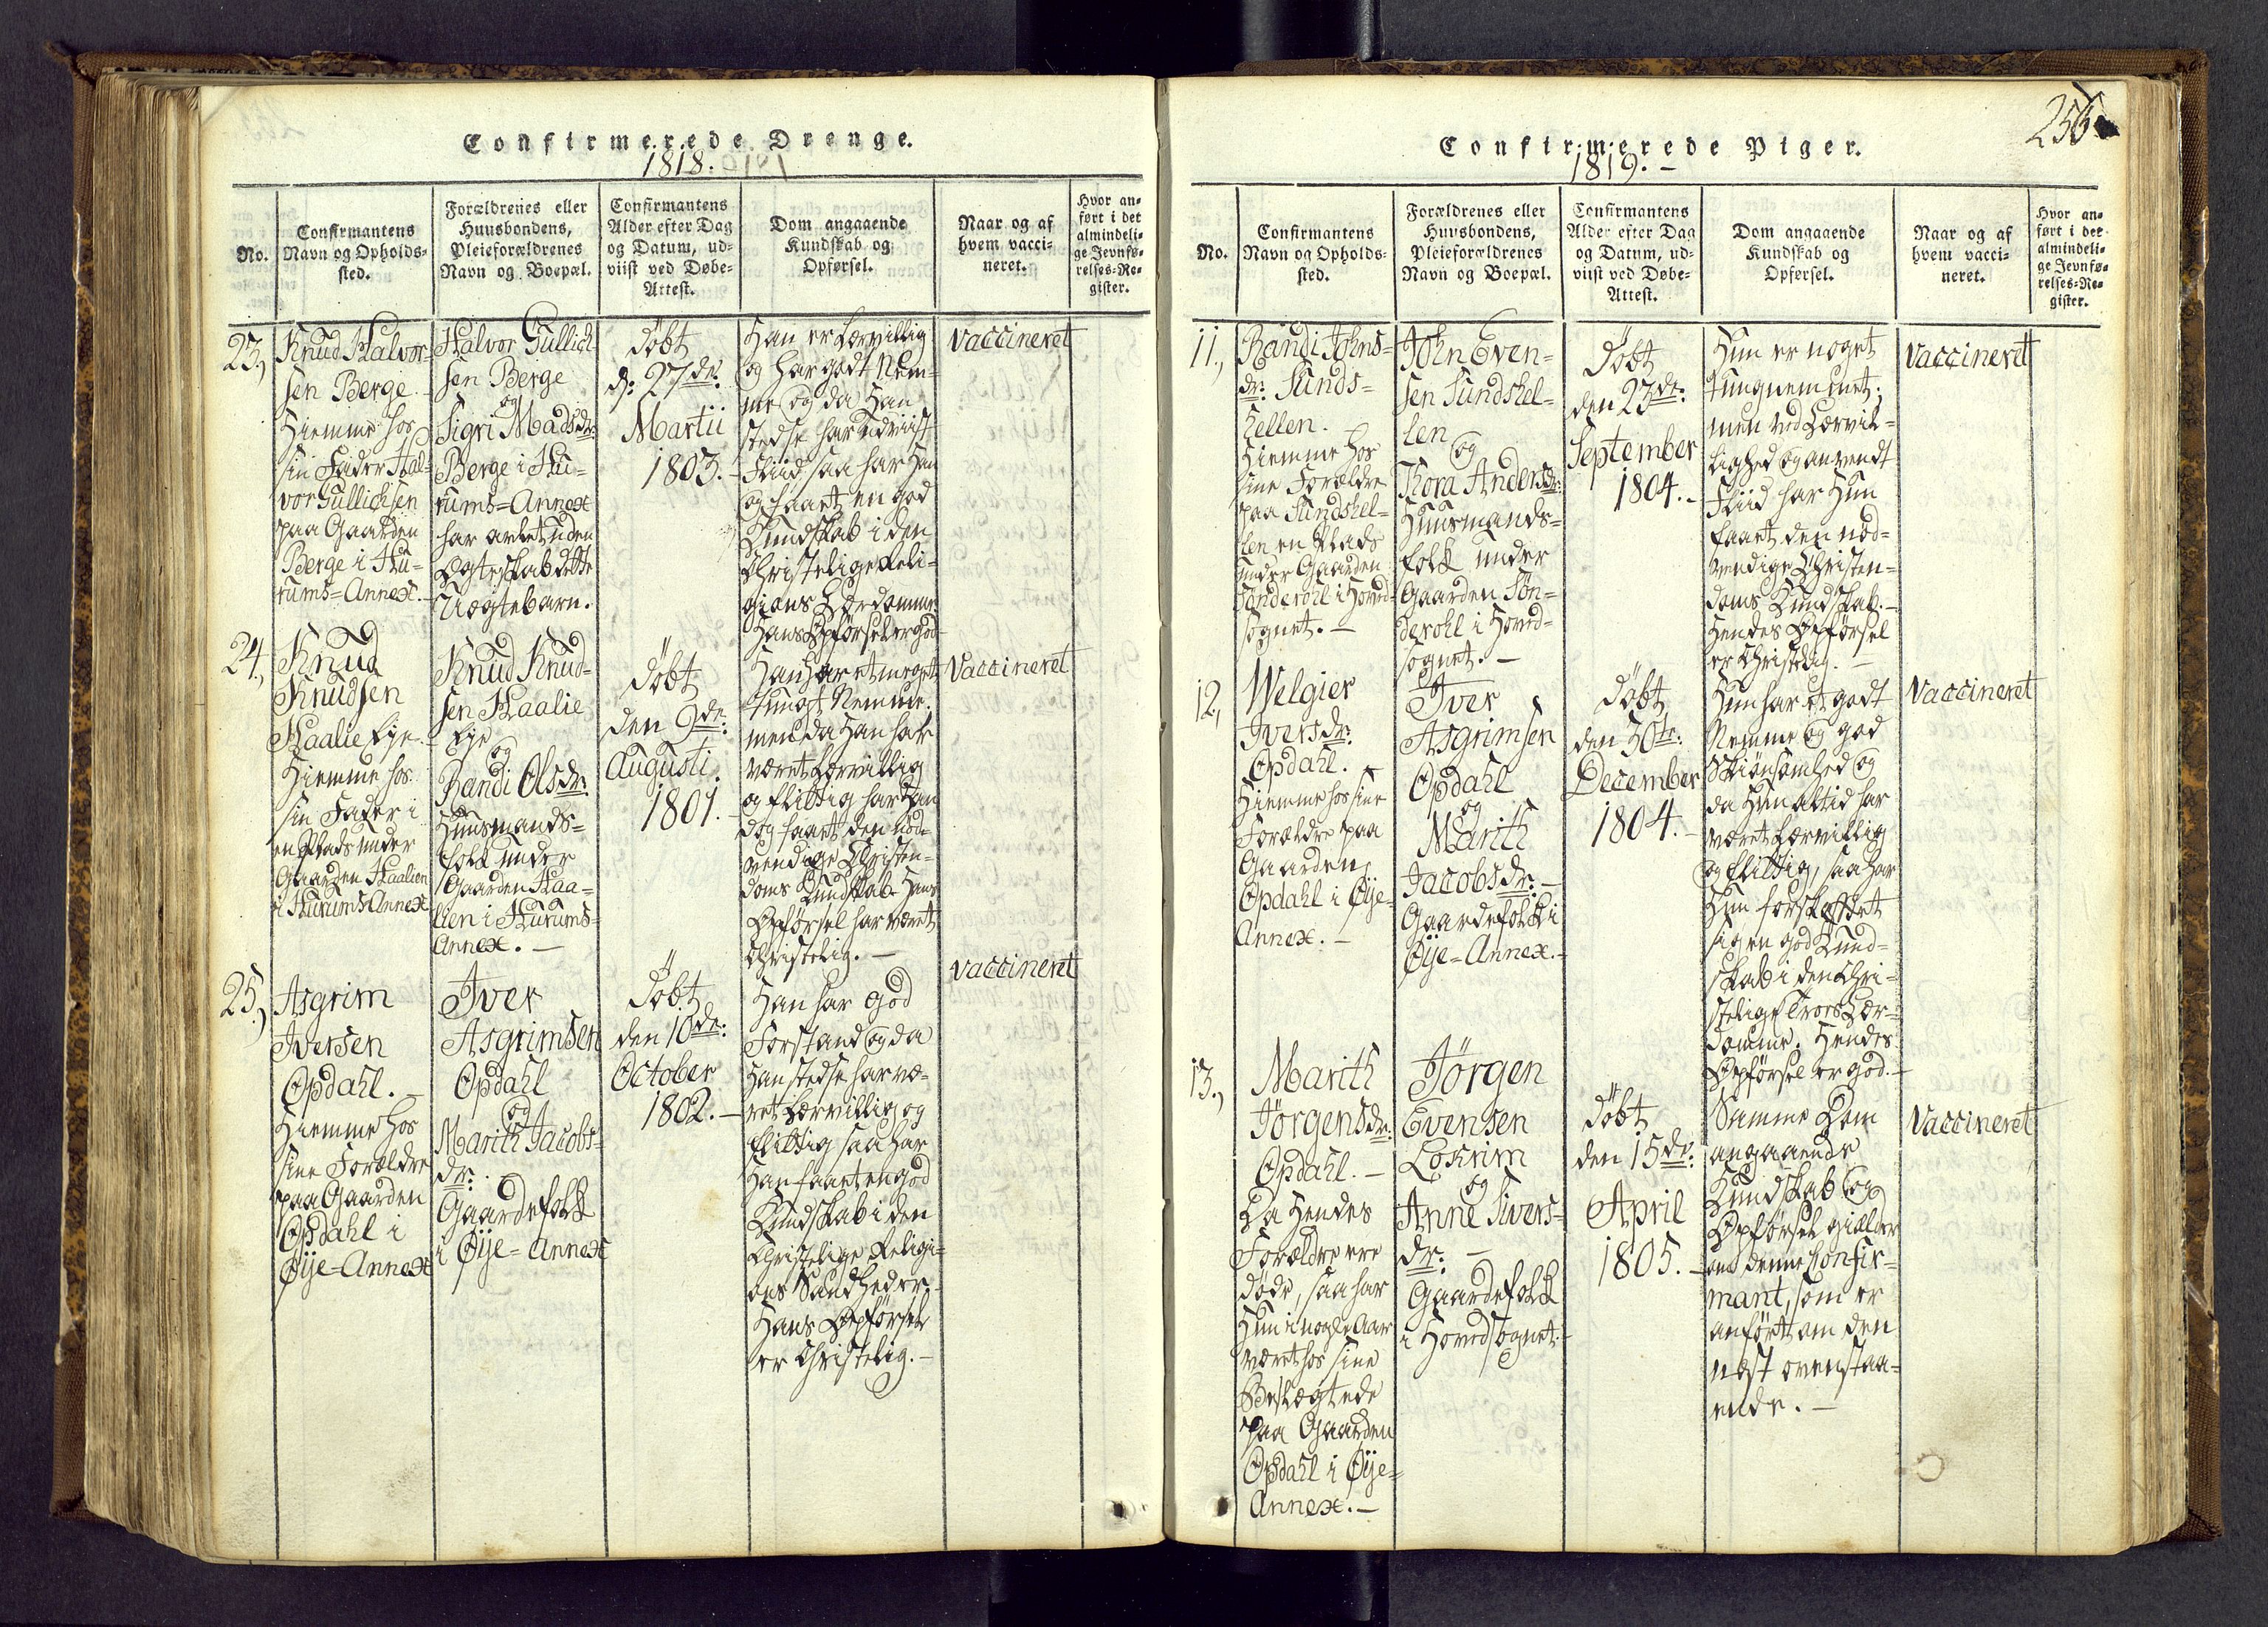 Confirmerede Drenge.
1818.
No.
Confirmantens
Navn og Opholds-
sted.
Forældrenes eller
Huusbondens,
Pleieforældrenes
Navn og Boepæl.
Confirmantens
Alder efter Dag
og Datum, ud-
viist ved Døbe-
Attest.
Dom angaaende
Kundskab og
Opførsel.
Naar og af
hvem vacci-
neret.
Hvor an-
ført i det
almindeli-
ge Jevnfø-
relses-Re-
gister.
23,
Knud Halvor-
sen Berge
Hiemme hos
sin Fader Hal-
vor Gullichsen
paa Gaarden
Berge i Hu-
rums-Annex.-
Halvor Gullich-
sen Berge
og
Sigri Madsdr:
Berge i Hu-
rums-Annex
har avlet uden
Ægteskab dette
Uægtebarn.
döbt
d: 27de:
Martii
1803.-
Han er Lærvillig
og har godt Nem-
me og da Han
stedse har udviist
Fliid, saa har Han
og faaet en god
Kundskab i den
Christelige Reli-
gions Lærdomme.
Hans Opförsel er god
vaccineret
24,
Knud
Knudsen
Haalie Eye.
Hiemme hos
sin Fader i
en Plads under
Gaarden Haalien
i Hurums Annex
Knud Knud-
sen Haalie
Eye
og
Randi Olsdr:
Huusmands-
folk under
Gaarden Haa-
lien i Hurums-
Annex.-
döbt
den 9de:
Augusti
1801.-
Han har et meget
tungt Nemme.
men da Han har
været Lærvillig
og flittig har Han
dog faaet den nöd-
vendige Christen-
doms Kundskab. Hans
Opførsel har været
Christelig.-
Vaccineret
25,
Asgrim
Iversen
Opdahl.-
Hiemme hos
sine Forældre
paa Gaarden
Opdahl i
Øije-Annex
Iver
Asgrimsen
Opdahl
og
Marith Jacobs-
dr:
Gaardefolk
i Øije-Annex
döbt
den 10de:
October
1802.-
Han har god
Forstand og da
Han stedse har væ-
ret Lærvillig og
flittig saa har
Han faaet en god
Kundskab i den
Christelige Religi-
ons Sandheder.
Hans Opførsel
er Christelig.-
vaccineret
256
Confirmerede Piger.
1819.-
No.
Confirmantens
Navn og Opholds-
sted.
Forældrenes eller
Huusbondens,
Pleieforældrenes
Navn og Boepæl.
Confirmantens
Alder efter Dag
og Datum, ud-
viist ved Døbe-
Attest.
Dom angaaende
Kundskab og
Opførsel.
Naar og af
hvem vacci-
neret.
Hvor an-
ført i det
almindeli-
ge Jevnfø-
relses-Re-
gister.
11,
Randi Johns-
dr: Sunds-
hellen.-
Hiemme hos
sine Forældre
paa Sundshel-
len en Plads
under Gaarden
Sönderohl i Hoved-
sognet.-
John Even-
sen Sundshel-
len
og
Thora Andersdr:
Huusmands-
folk under
Gaarden Sön-
derohl i Hoved-
sognet.-
döbt
den 23de:
September
1804.-
Hun er noget
tungnemmet;
men ved Lærvil-
lighed og anvendt
Fliid har Hun
faaet den nöd-
vendige Christen-
doms Kundskab.-
Hendes Opførsel
er Christelig.-
Vaccineret
12,
Welgier
Iversdr:
Opdahl.-
Hiemme hos sine
Forældre paa
Gaarden
Opdahl i Øije-
Annex.-
Iver
Asgrimsen
Opdahl
og
Marith
Jacobsdr:-
Gaardefolk i
Øije-Annex.-
döbt
den 30te:
December
1804.-
Hun har et godt
Nemme og god
Skiönsomhed og
da Hun altid har
været Lærvillig
og flittig, saa har
Hun forskaffet
sig en god Kund-
skab i den Chri-
stelige Troes Lær-
domme. Hendes
Opførsel er god.-
Vaccineret
13,
Marith
Jörgensdr:
Opdahl.-
Da Hendes
Forældre ere
döde, saa har
Hun i nogle Aar
været hos sine
Beslægtede
paa Gaarden
Opdahl i Øije-
Annex.-
Jörgen
Evensen
Lokrim
og
Anne Sivers-
dr:-
Gaardefolk
i Hovedsognet.-
döbt
den 15de:
April
1805.-
Samme Dom
angaaende
Kundskab og
Opførsel gielder
om denne Confir-
mant, som er
anfört om den
nest ovenstaa-
ende.-
Vaccineret